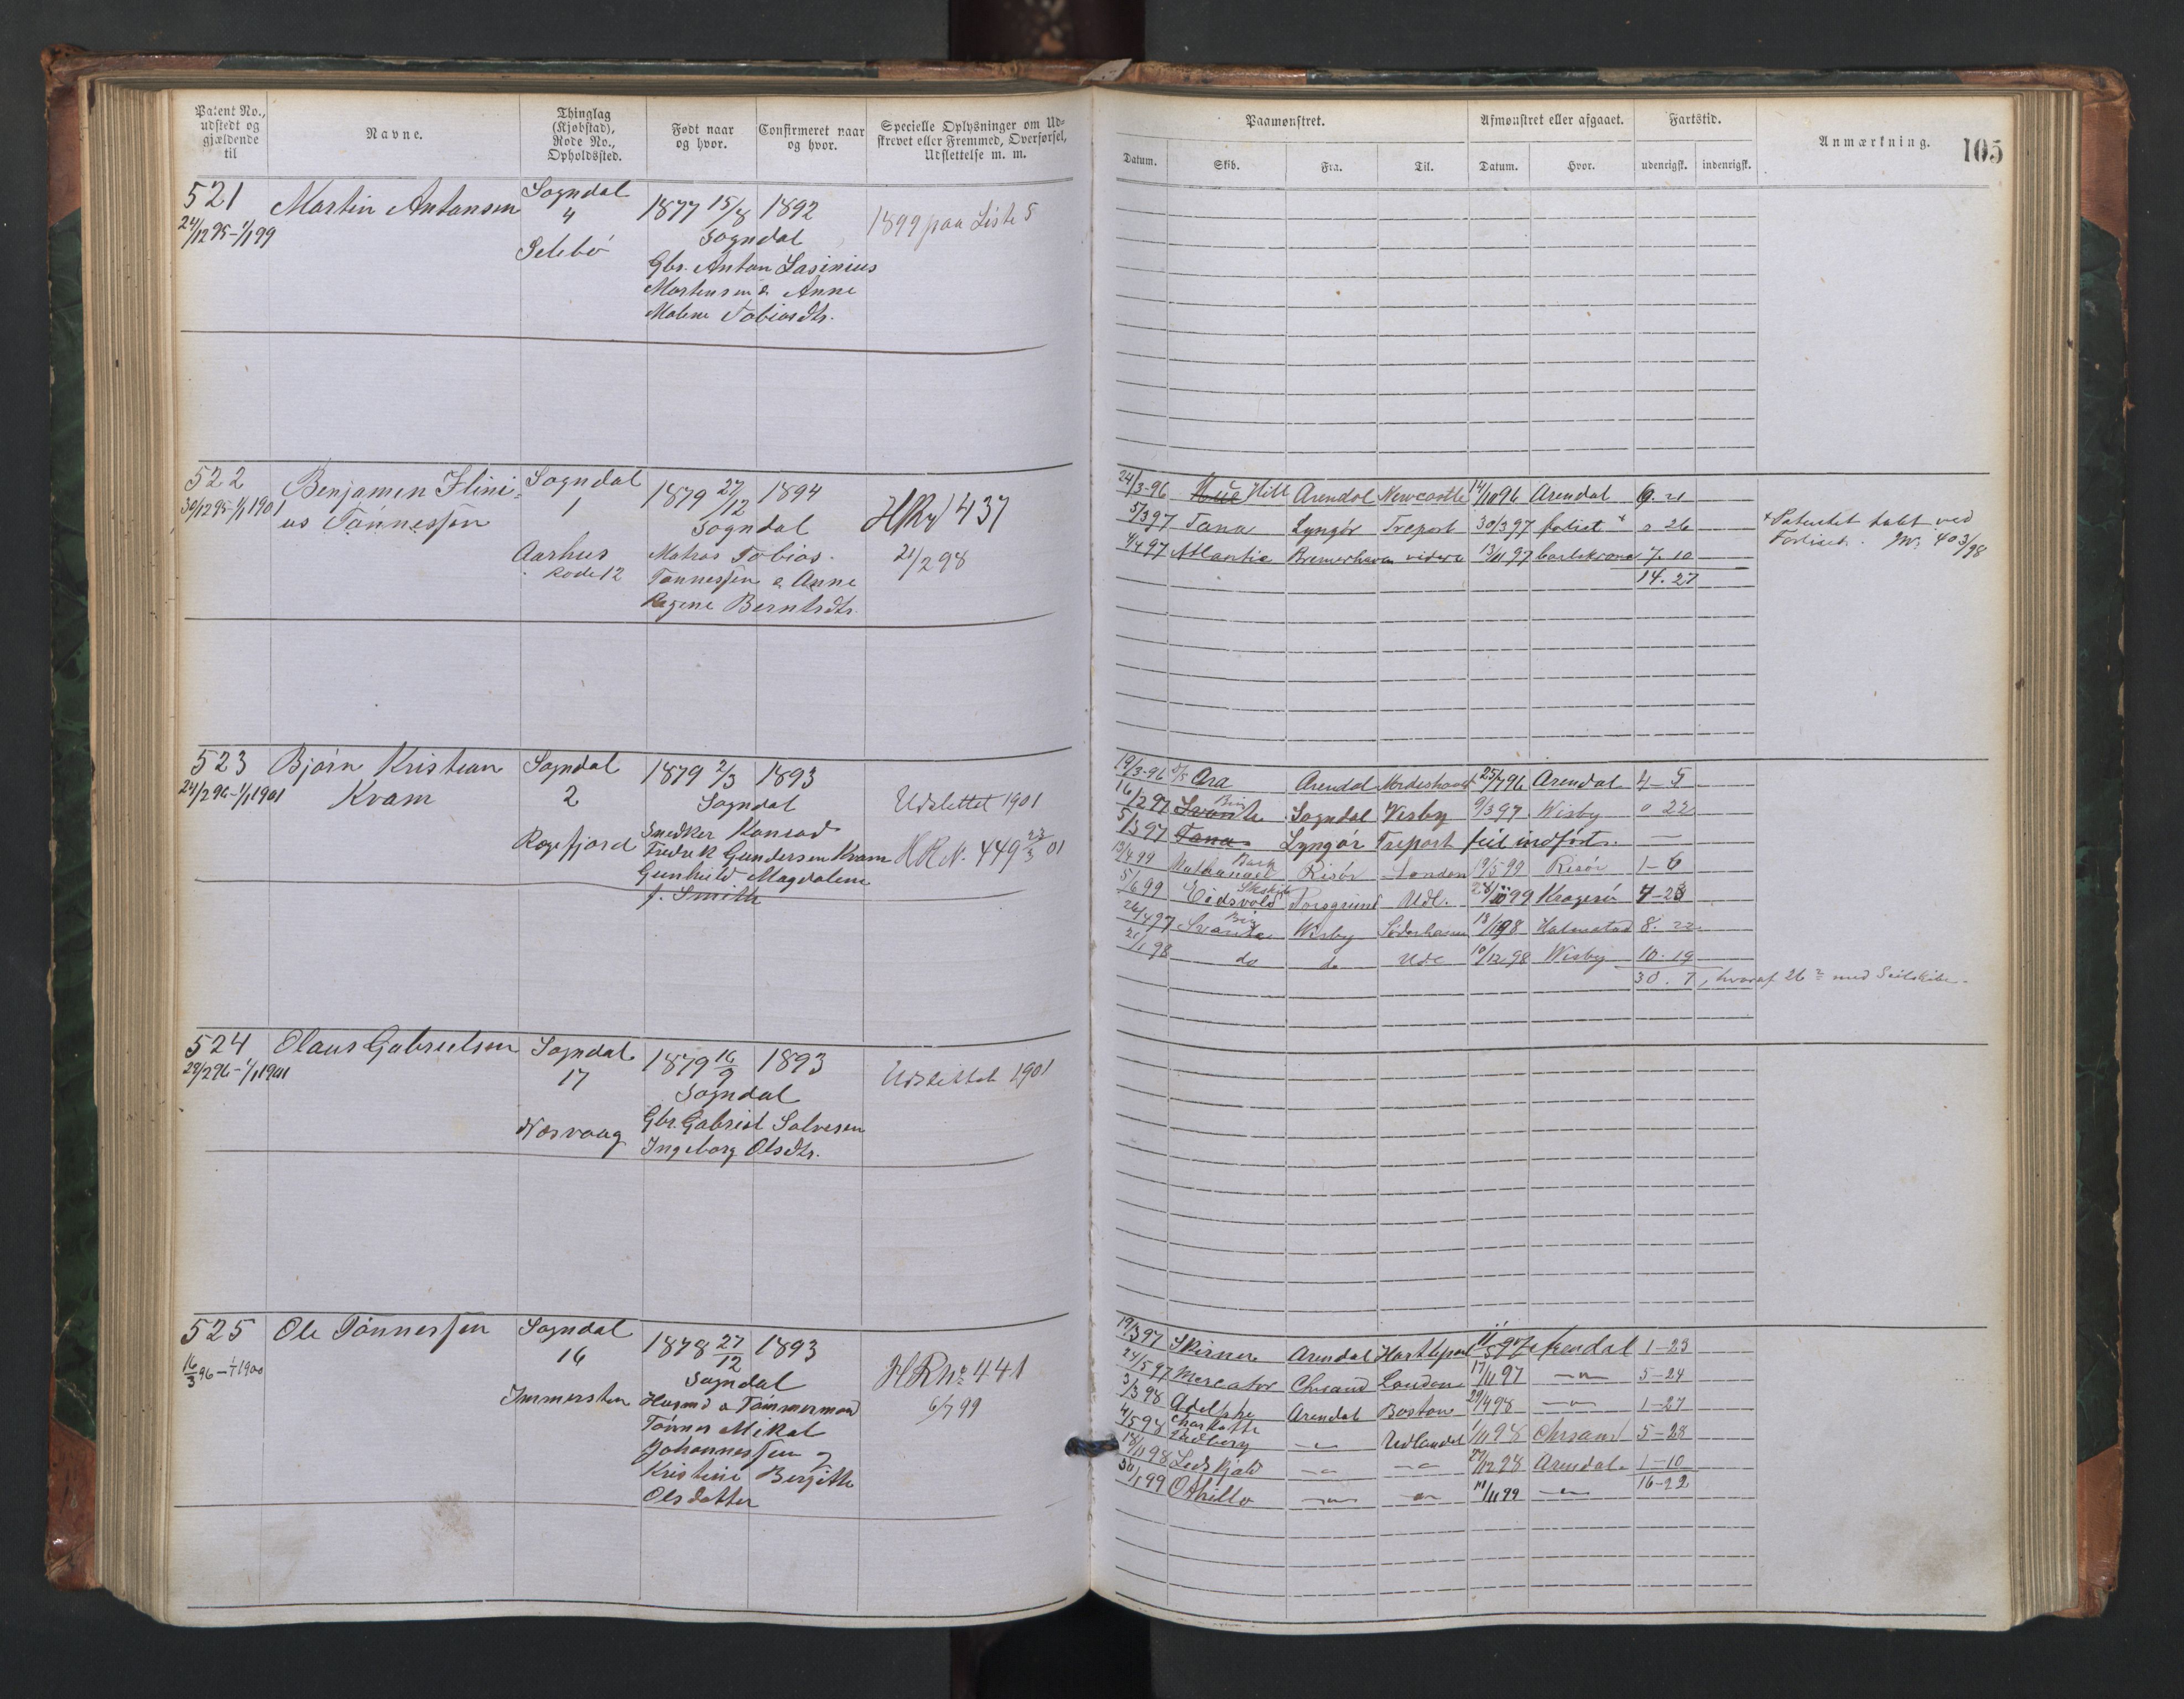 Patent No., udstedt og gjældende til
Navne.
Thinglag (Kjøbstad), Rode No., Opholdssted.
Født naar og hvor.
Confirmeret naar og hvor.
Specielle Oplysninger om Udskrevet eller Fremmed, Overførsel, Udslettelse m. m.
Paamønstret.
Datum.
Skib.
Fra.
Til.
Afmønstret eller afgaaet.
Datum.
Hvor.
Fartstid.
udenrigsk.
indenrigsk.
Anmærkning.
105
521 Martin Antonsen Sogndal 1877 15/8 1892 1899 paa Liste 5
24/12 95 - 1/1 99 4 Sogndal
Selebø Gbr. Anton Lasinius
Mortensen & Anne
Malene Tobiasdtr.
522 Benjamin Flini- Sogndal 1879 27/12 1894 HRN 437
30/12 95 - 1/1 1901 us Tønnessen 1 Sogndal
Aarhus Matros Tobias 21/2 98
Rode 12 Tønnessen & Anne
Regine Berntsdtr.
24/3-96 Hill Arendal Newcastle 14/10 96 Arendal 6. 21
5/3 97 Tana Lyngør Treport 30/3 97 forlist + 0 26 + Patentet tabt ved
4/4 97 Atlantic Bremerhaven videre 13/11 97 Carlskrona 7. 10 Forliset. 403/98
14. 27
523 Bjørn Kristian Sogndal 1879 2/3 1893
24/2 96 - 1/1 1901 Kvam 2 Sogndal Udslettet 1901
Rægefjord Snedker Konrad
Fredrik Gundersen Kvam HRN. 449 23/3 01
Gunhild Magdalene
f. Smith
19/3-96 Ara Arendal 25/7 96 Arendal 4-5
16/2 97 Brig Svante Sogndal Wisby 9/3 97 Wisby 0 22
5/3 97 Tana Lyngør Treport feil indført. —
13/4 99 Bark Nathanael Risør London 19/5 99 Risør 1-6
5/6 99 Skskib Eidsvold Porsgrund Udl. 28/10 99 Kragerø 4-23
26/4 97 Brig Svante Wisby Söderhamn 18/1 98 Halmstad 8. 22
21/1 98 do do Udl 10/12 98 Wisby 10. 19
30. 7, hvoraf 26 med Seilskibe.
524 Olaus Gabrielsen Sogndal 1879 16/9 1893 Udslettet 1901
29/2 96 - 1/1 1901 17 Sogndal
Nesvaag Gbr. Gabriel Salvesen
Ingeborg Olsdtr.
525 Ole Tønnessen Sogndal 1878 27/12 1893 HRNo 441
16/3 96 - 1/1 1900 16 Sogndal 6/7 99
Immersten Husmd & Tømmermand
Tønnes Mikal
Johannessen og
Kristine Bergitte
Olsdatter
19/3 97 Skirner Arendal Hartlepool 11/5 97 Arendal 1-23
24/5 97 Mercator Chrsand London 17/11 97 —"— 5-24
3/3 98 Adelphe Arendal Boston 29/4 98 —"— 1-27
4/5 98 Charlotte Padborg —"— Udlandet 1/11 98 Chrsand 5-28
18/11 98 Ledskjald —"— —"— 27/12 98 Arendal 1-10
30/1 99 Othillo —"— —"— 11/11 99 —"— 16-22